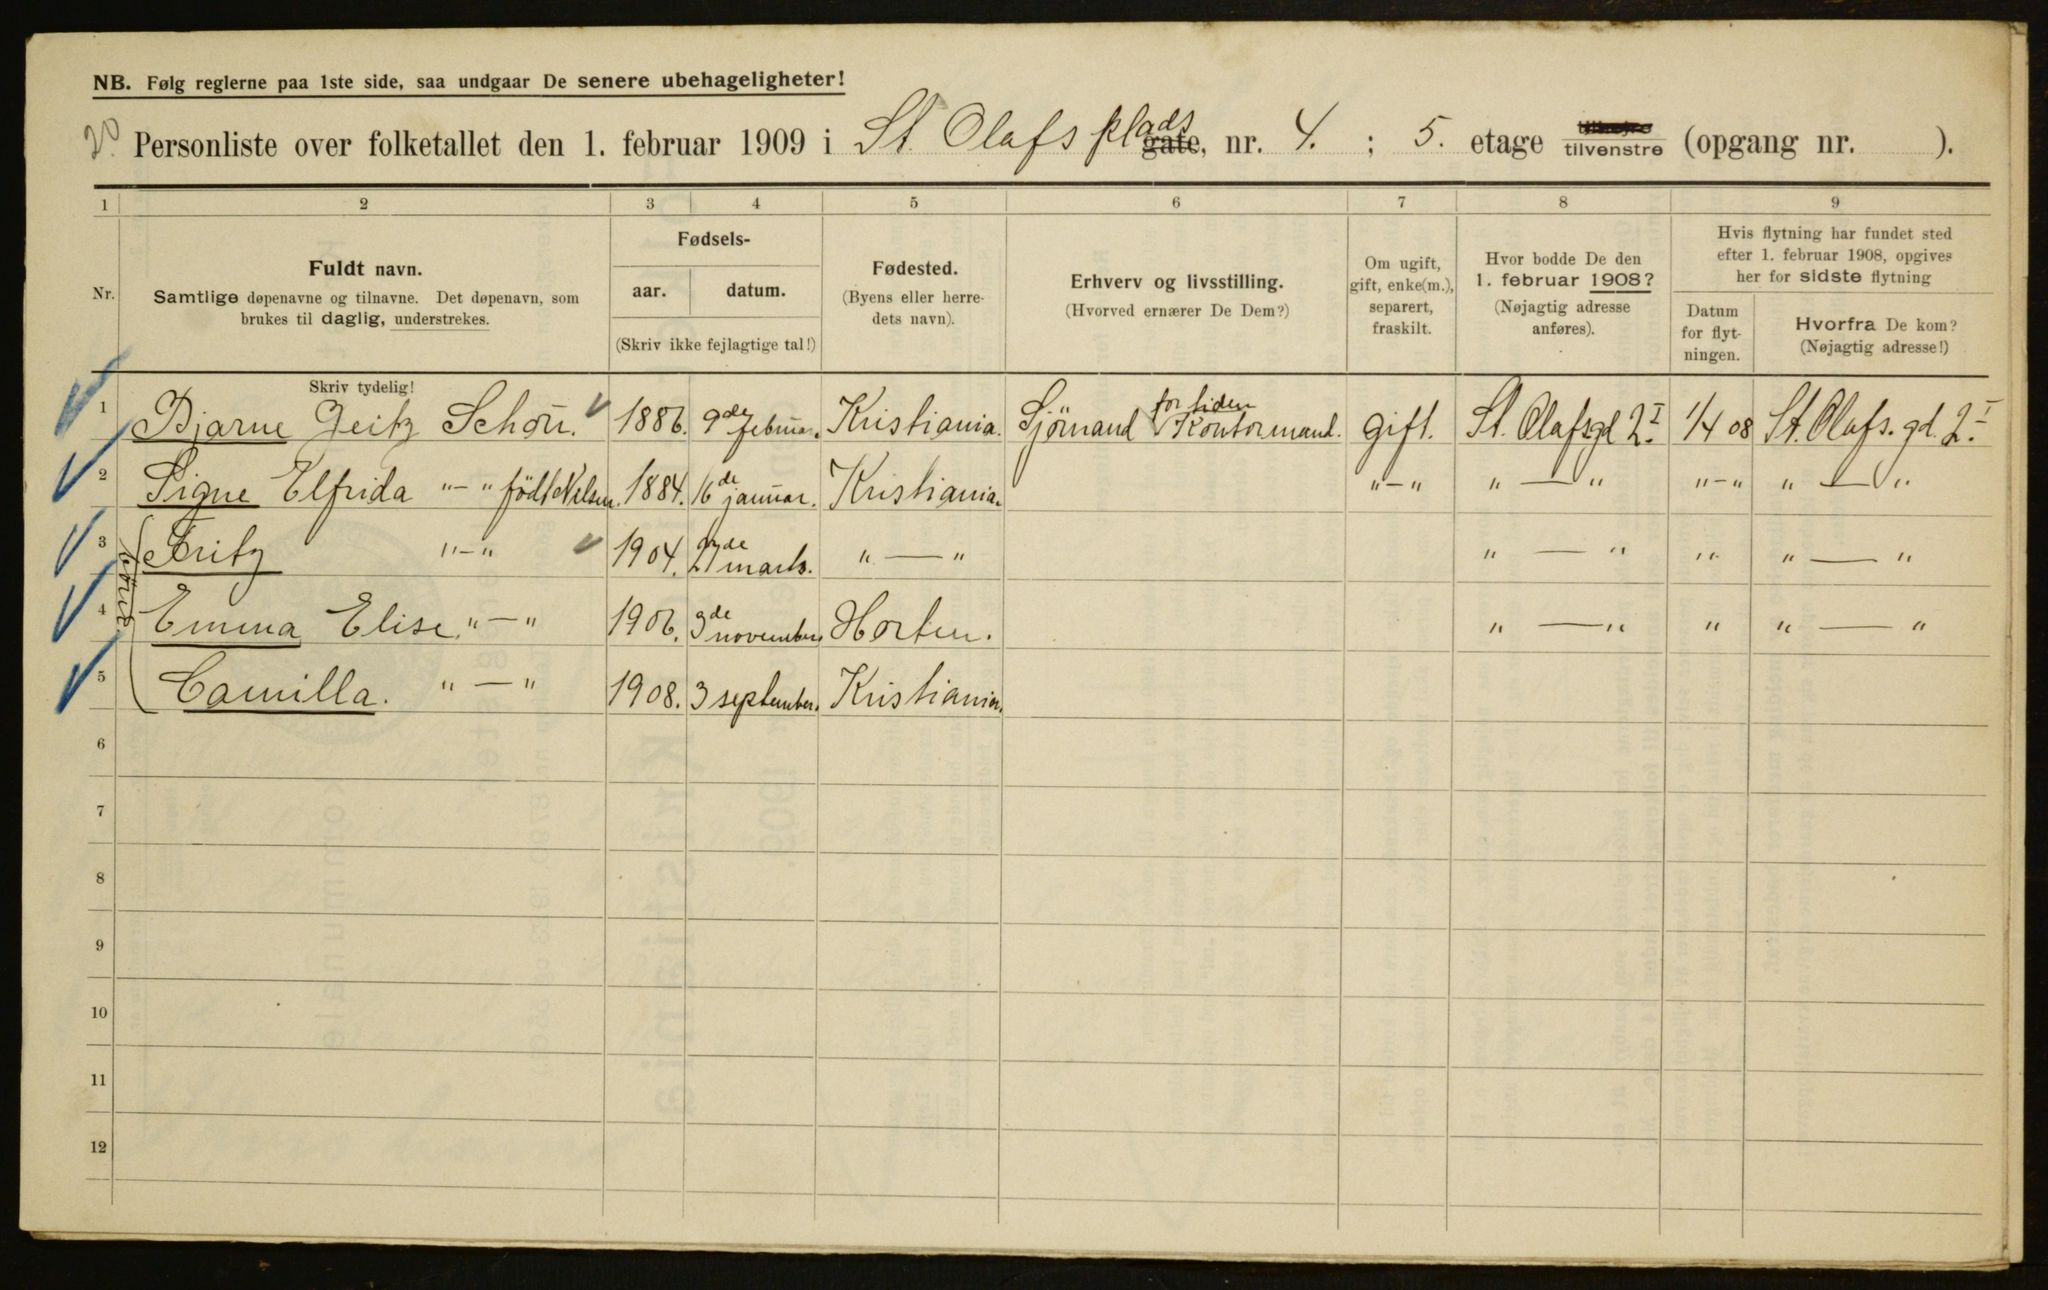 NB. Følg reglerne paa 1ste side, saa undgaar De senere ubehageligheter!
20. Personliste over folketallet den 1. februar 1909 i St. Olafs plads gate, nr. 4. ; 5. etage tilvenstre (opgang nr. ).
1 2 3 4 5 6 7 8 9
Nr.
Fuldt navn.
Samtlige døpenavne og tilnavne. Det døpenavn, som
brukes til daglig, understrekes.
Fødsels-
aar. datum.
(Skriv ikke fejlagtige tal!)
Fødested.
(Byens eller herre-
dets navn).
Erhverv og livsstilling.
(Hvorved ernærer De Dem?)
Om ugift,
gift, enke(m.),
separert,
fraskilt.
Hvor bodde De den
1. februar 1908?
(Nøjagtig adresse
anføres).
Hvis flytning har fundet sted
efter 1. februar 1908, opgives
her for sidste flytning
Datum
for flyt-
ningen.
Hvorfra De kom?
(Nøjagtig adresse!)
Skriv tydelig!
1 Bjarne Geitz Schou. 1886. 9de februar. Kristiania. Sjömand for tiden Kontormand. gift. St. Olafsgd 2I 1/4 08 St. Olafs. gd. 2I
2 Signe Elfrida "-" født Nilsen. 1884. 16de januar. Kristiania. "-" " — " "-" " — "
börn
3 Fritz "-" 1904. 27de marts. " — " " — " " " — "
4 Emma Elise. "-" 1906. 3de november. Horten. " — " " " — "
5 Camilla. "-" 1908. 3 september. Kristiania.
6
7
8
9
10
11
12